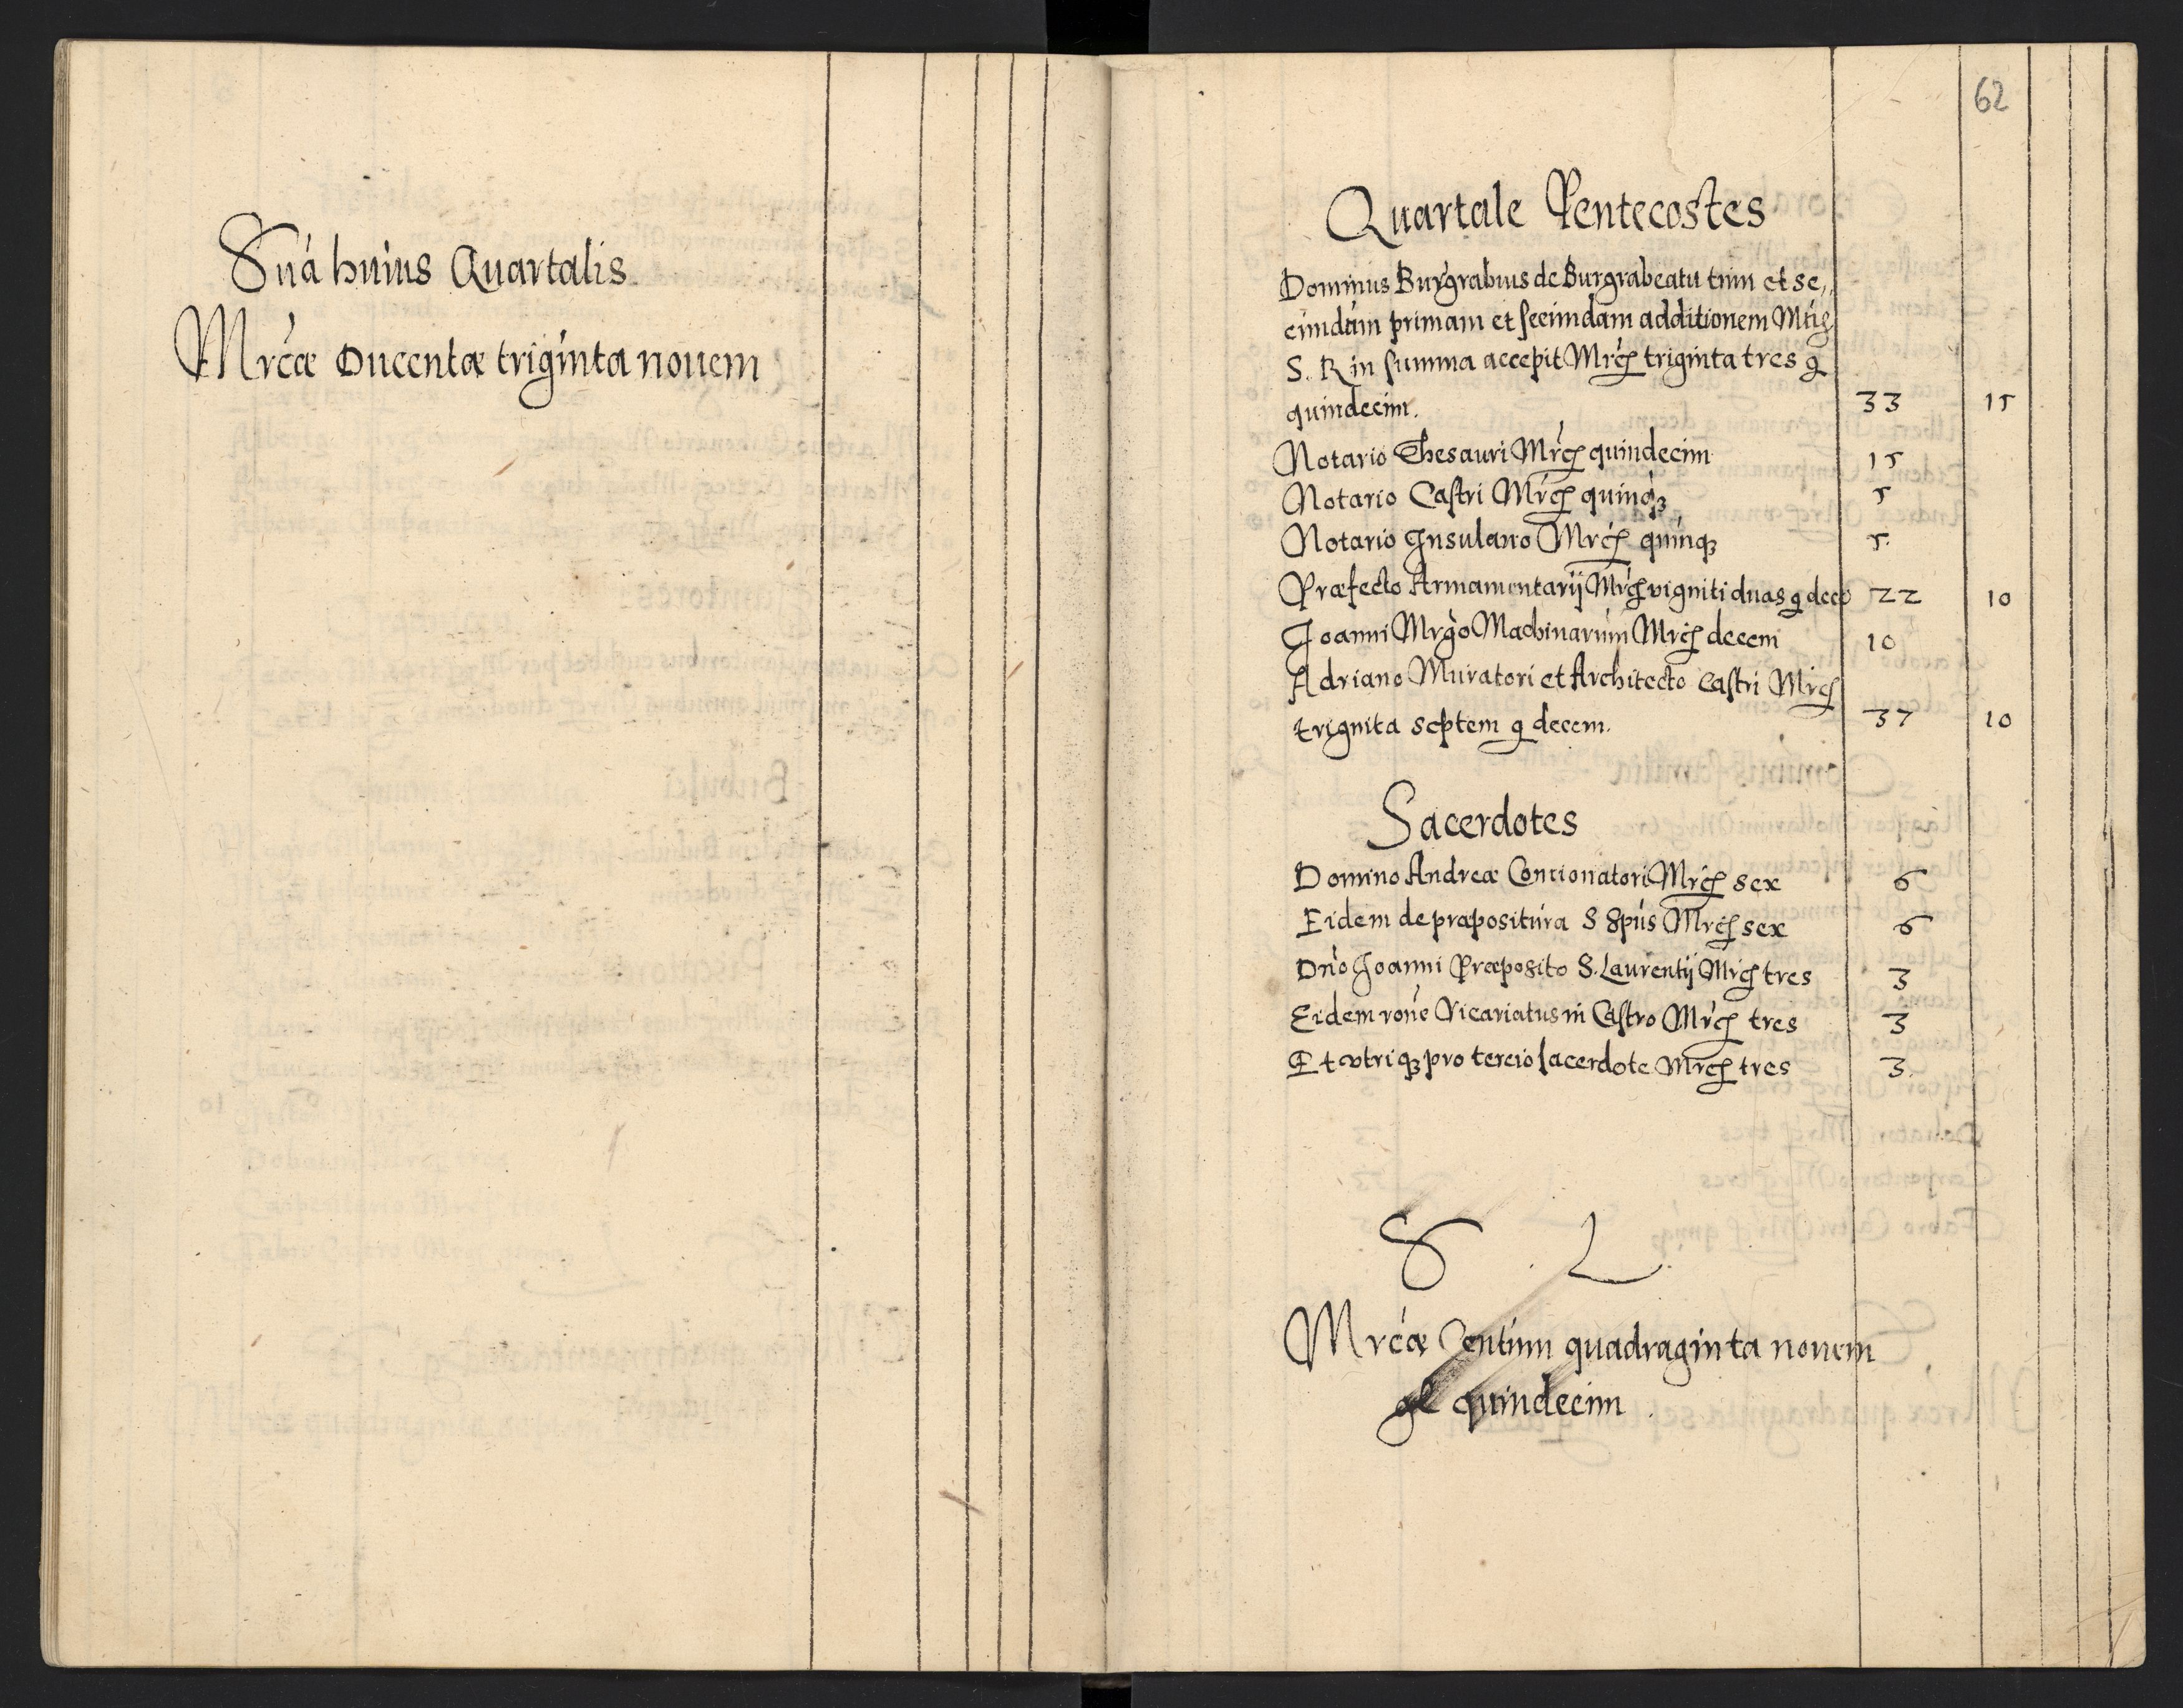 Sūa huius Quartalis
Mrcæ Ducentæ triginta nouem
62
Quartale Pentecostes
Dominus Burgrabius de Burgrabeatu tum et se,,
cundum primam et secundam additionem Mtis
S. R in summa accepit Mrcs triginta tres g
quindecim. 33 15
Notario Thesauri Mrcs quindecim 15
Notario Castri Mrcs quinqꝫ 5
Notario Insulano Mrcs quinqꝫ 5.
Præfecto Armamentarij Mrcs viginti duas g dece 22 10
Joanni Mrgo Machinarum Mrcs decem 10
Adriano Muratori et Architecto Castri Mrcs
triginta septem g decem. 37 10
Sacerdotes
Domino Andreæ Concionatori Mrcs sex 6
Eidem de præpositura S Spūs Mrcs sex 6
Dn̄o Joanni Præposito S. Laurentij Mrcs tres 3
Eidem rone Vicariatus in Castro Mrcs tres 3
Et vtriqꝫ pro tercio sacerdote Mrcs tres 3.
S . L .
Mrcæ Centum quadraginta nouem
gl quindecim .